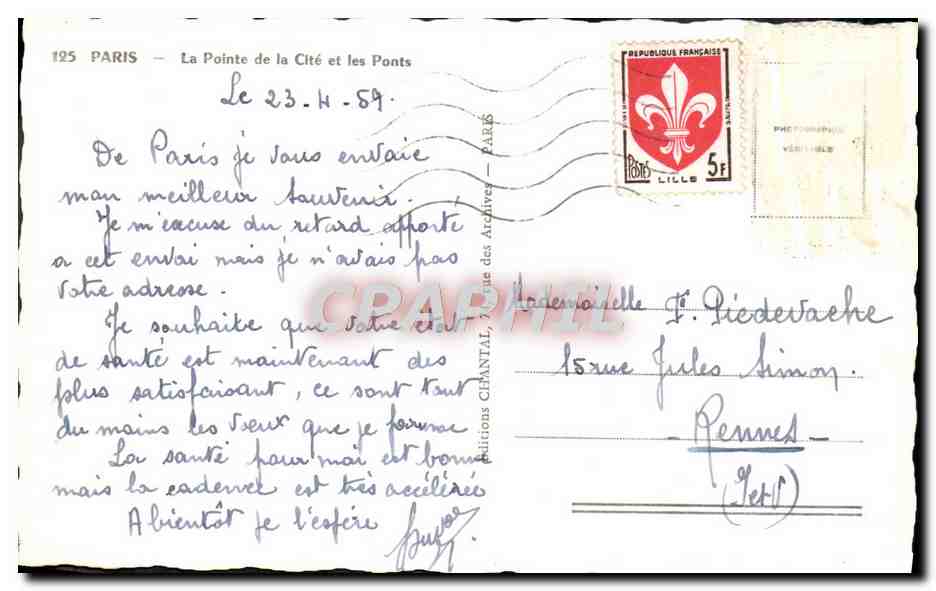 125 PARIS — La Pointe de la Cité et les Ponts
Le 23-4-59.
De Paris je vous envoie
mon meilleur souvenir.
Je m'excuse du retard apporté
a cet envoi mais je n'avais pas
votre adresse.
Je souhaite que votre état
de santé est maintenant des
plus satisfaisant, ce sont tout
du moins les voeux que je forme
La santé pour moi est bonne
mais la cadence est très accélérée
A bientôt je l'espère
Editions CHANTAL, 74, rue des Archives — PARIS
REPUBLIQUE FRANÇAISE
POSTES
5F
LILLE
PHOTOGRAPHIE
VÉRITABLE
Mademoiselle F. Piedevache
15 rue Jules Simon.
- Rennes -
(I et V)
CPAPHIL